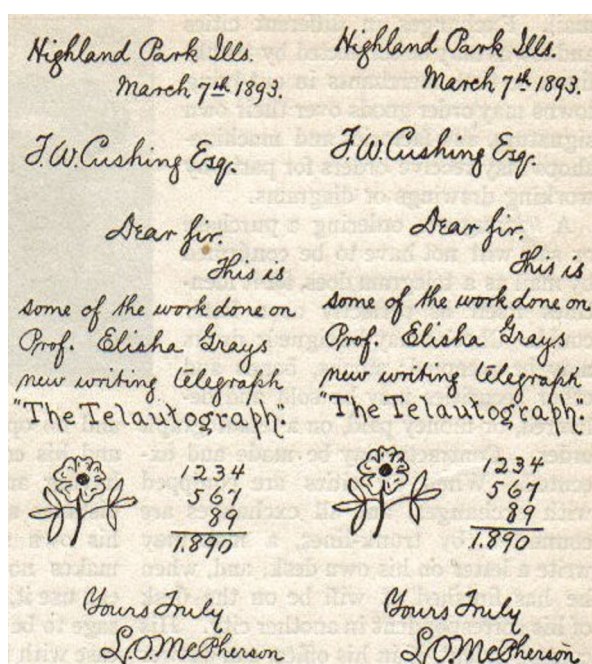 Highland Park Ills.
March 7th 1893.
F.W. Cushing Esq.
Dear Sir.
This is
some of the work done on
Prof. Elisha Grays
new writing telegraph
"The Telautograph".
1234
567
89
1.890
Yours Truly
L.O McPherson
Highland Park Ills.
March 7th 1893.
F.W. Cushing Esq.
Dear Sir.
This is
some of the work done on
Prof. Elisha Grays
new writing telegraph
"The Telautograph".
1234
567
89
1.890
Yours Truly
L.O McPherson